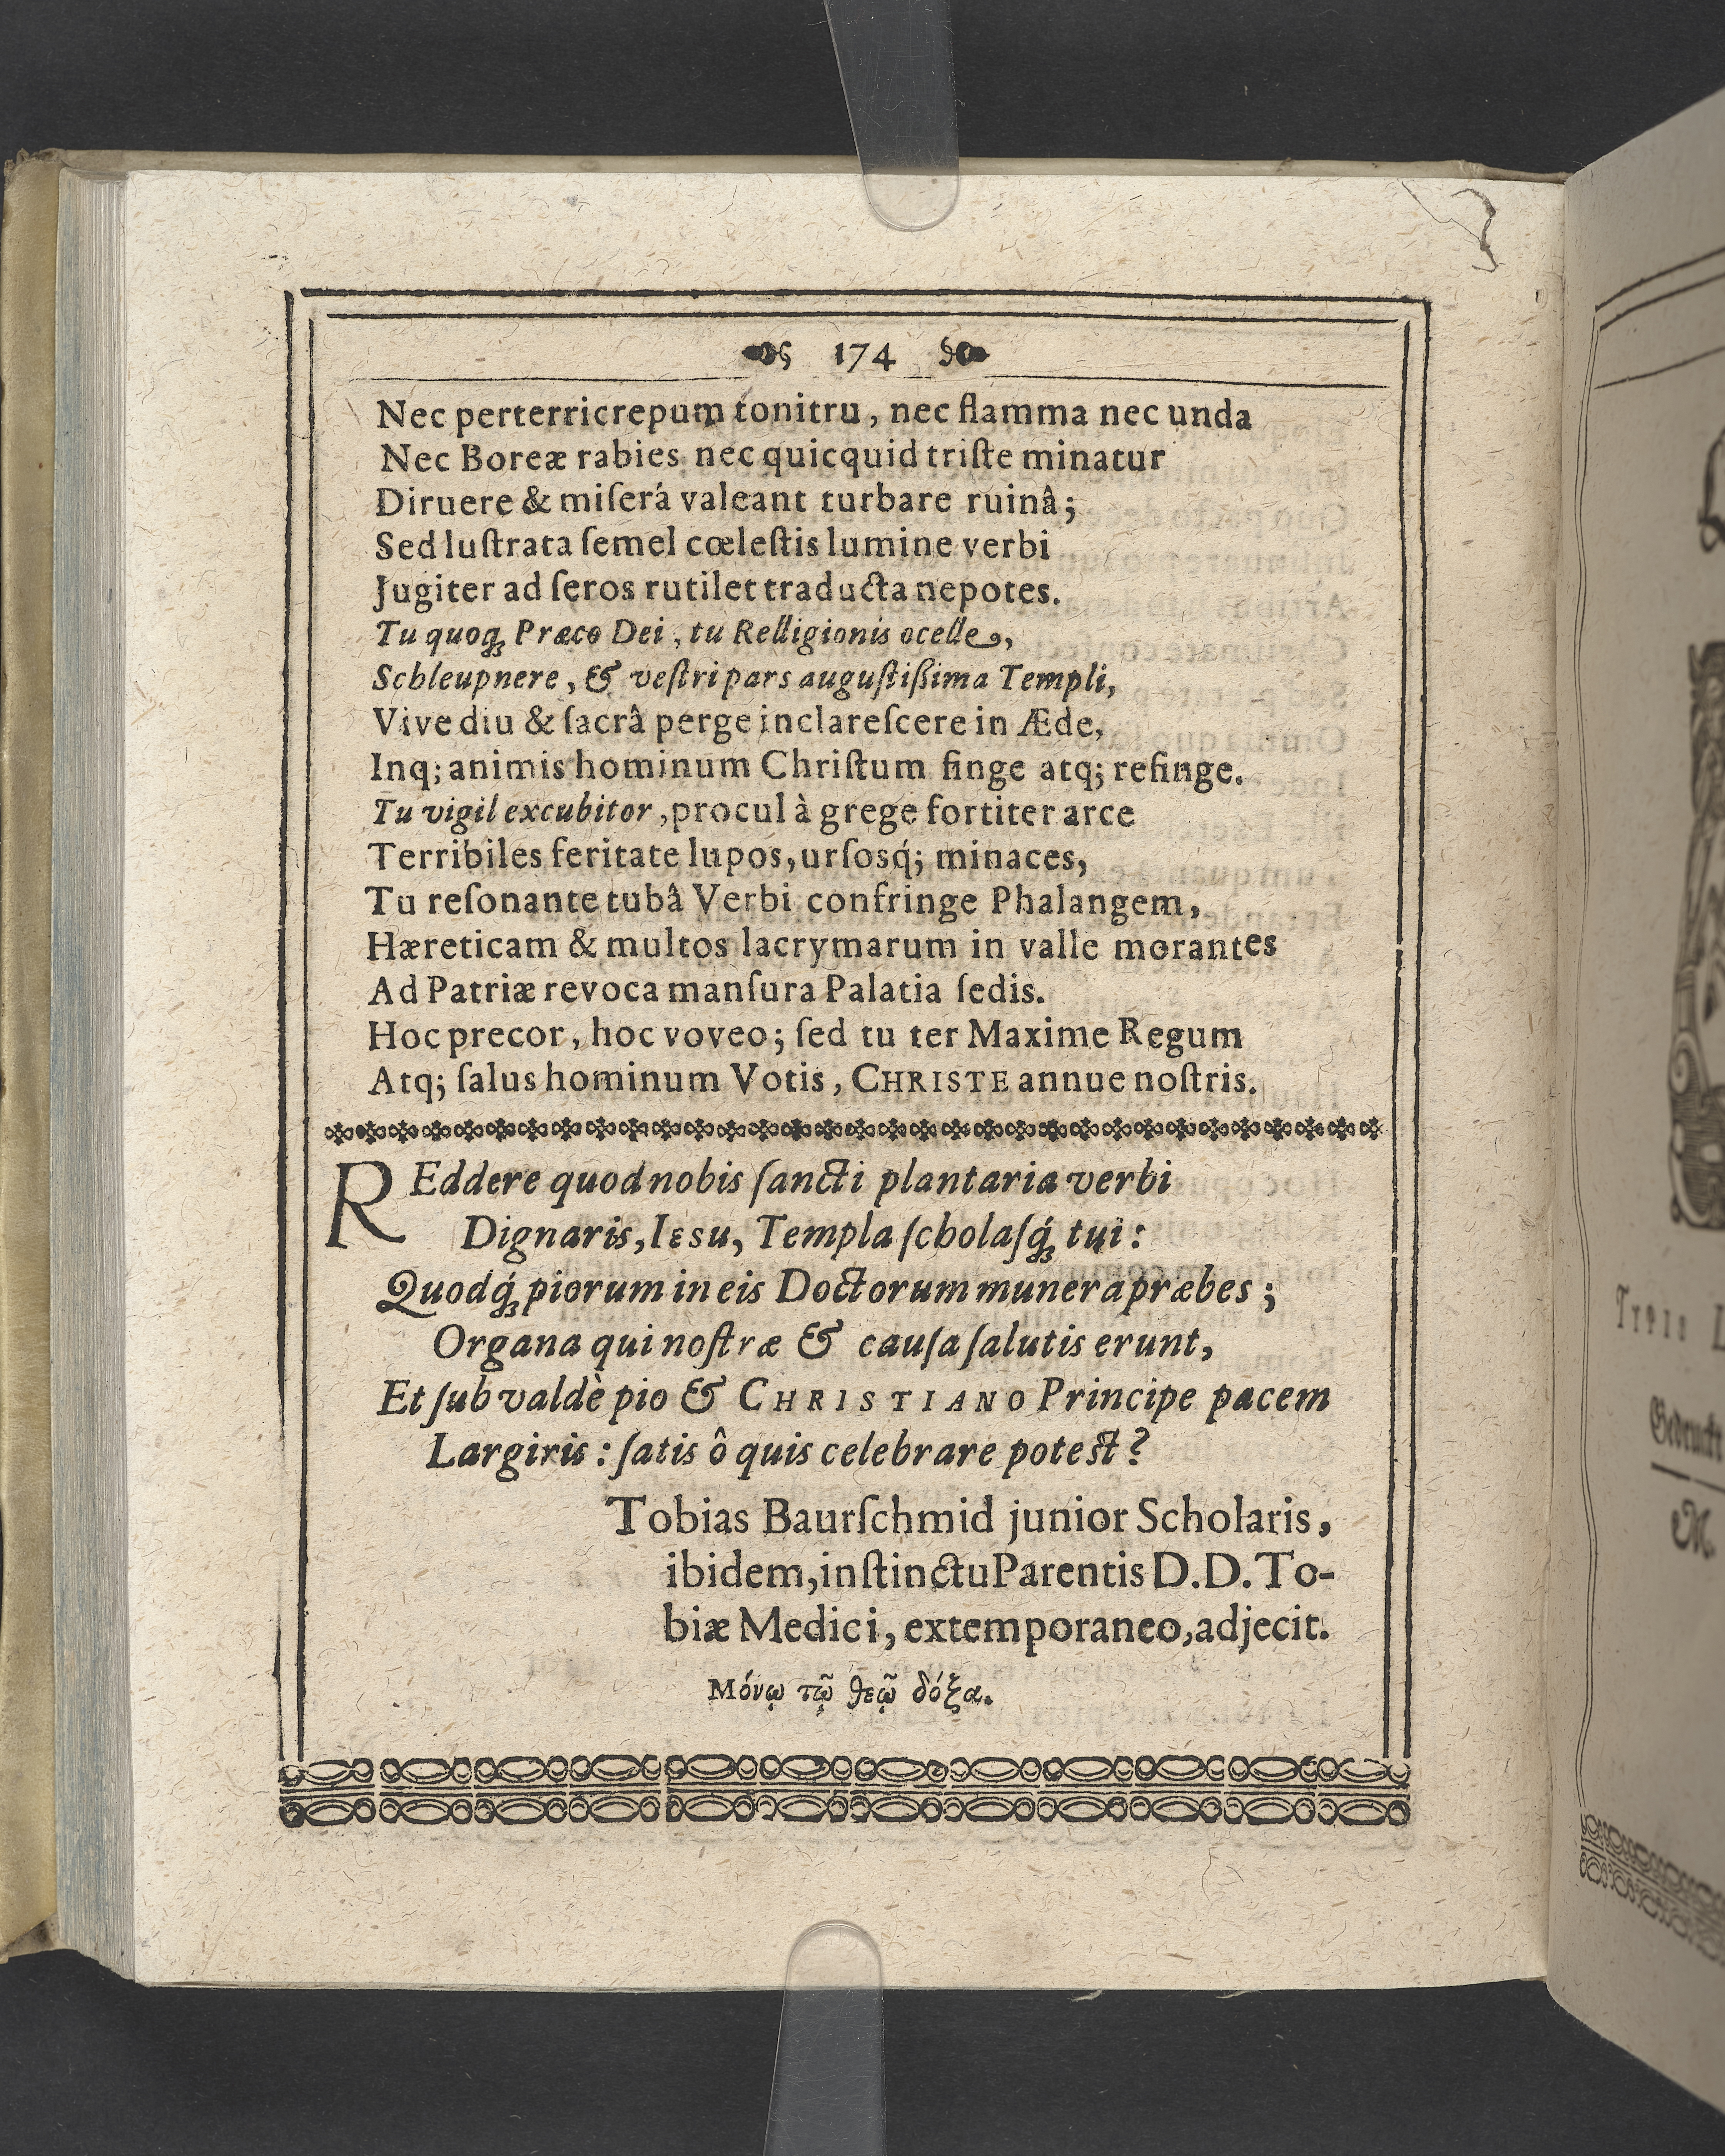 174
Nec perterricrepum tonitru, nec flamma nec unda
Nec Boreæ rabies nec quicquid triſte minatur
Diruere & miſerá valeant turbare ruinâ;
Sed luſtrata ſemel cœleſtis lumine verbi
Jugiter ad ſeros rutilet traducta nepotes.
Tu quoq; Præco Dei, tu Relligionis ocelle,
Schleupnere, & veſtri pars auguſtiſsima Templi,
Vive diu & ſacrâ perge inclareſcere in Æde,
Inq; animis hominum Chriſtum finge atq; refinge.
Tu vigil excubitor, procul à grege fortiter arce
Terribiles feritate lupos, urſosq́; minaces,
Tu reſonante tubâ Verbi confringe Phalangem,
Hæreticam & multos lacrymarum in valle morantes
Ad Patriæ revoca manſura Palatia ſedis.
Hoc precor, hoc voveo; ſed tu ter Maxime Regum
Atq; ſalus hominum Votis, CHRISTE annue noſtris.
REddere quod nobis ſancti plantaria verbi
Dignaris, IESU, Templa ſcholaſq́; tui:
Quodq́; piorum in eis Doctorum munera præbes;
Organa qui noſtræ & cauſa ſalutis erunt,
Et ſub valdè pio & CHRISTIANO Principe pacem
Largiris: ſatis ô quis celebrare poteſt?
Tobias Baurſchmid junior Scholaris,
ibidem, inſtinctu Parentis D. D. To-
biæ Medici, extemporaneo, adjecit.
Μόνῳ τῷ θεῷ δόξα.
Gedruckt
M.